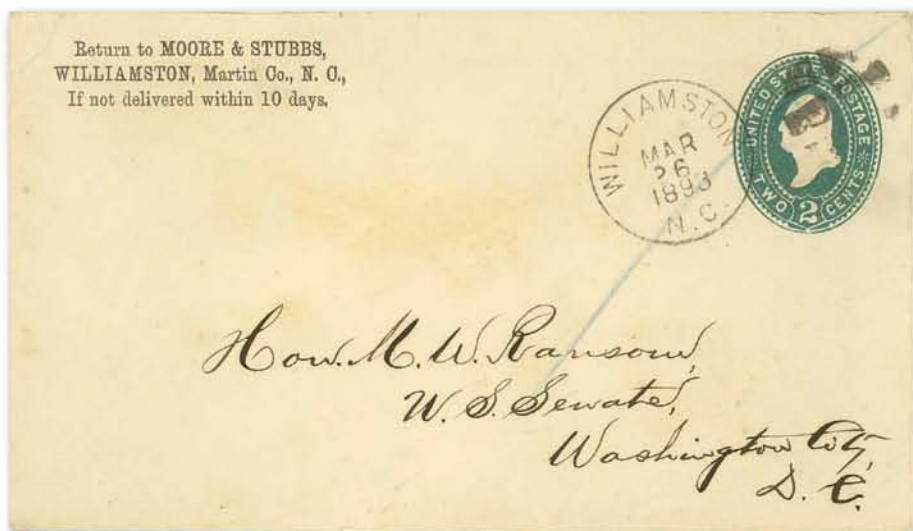 Return to MOORE & STUBBS,
WILLIAMSTON, Martin Co., N. C.,
If not delivered within 10 days.
WILLIAMSTON
MAR
26
1893
N.C.
UNITED STATES POSTAGE
TWO 2 CENTS
Hon. M. W. Ransom,
U. S. Senate,
Washington City,
D. C.